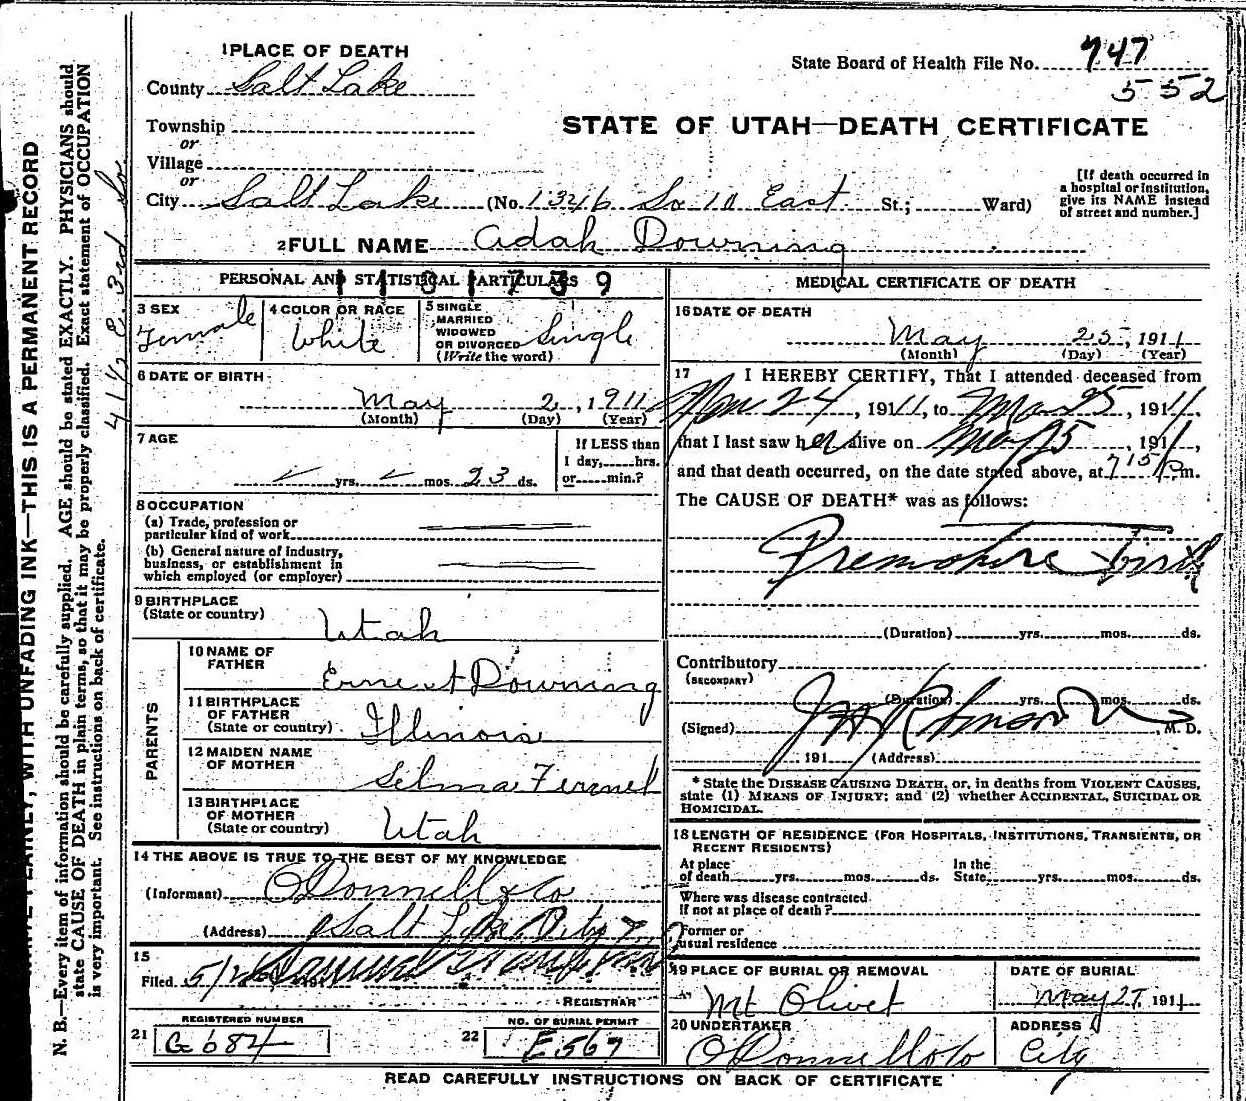 1 PLACE OF DEATH
County Salt Lake
State Board of Health File No. 747
552
Township
or
Village
or
STATE OF UTAH—DEATH CERTIFICATE
City Salt Lake (No. 1346 So 10 East St.; Ward)
[If death occurred in
a hospital or institution,
give its NAME instead
of street and number.]
2 FULL NAME Adah Downing
PERSONAL AND STATISTICAL PARTICULARS
3 SEX
Female
4 COLOR OR RACE
White
5 SINGLE
MARRIED
WIDOWED
OR DIVORCED
(Write the word)
Single
6 DATE OF BIRTH
May 2, 1911
(Month) (Day) (Year)
7 AGE
yrs. mos. 23 ds.
If LESS than
1 day, hrs.
or min.?
8 OCCUPATION
(a) Trade, profession or
particular kind of work
(b) General nature of industry,
business, or establishment in
which employed (or employer)
9 BIRTHPLACE
(State or country)
Utah
PARENTS
10 NAME OF
FATHER
Ernest Downing
11 BIRTHPLACE
OF FATHER
(State or country)
Illinois
12 MAIDEN NAME
OF MOTHER
Selma
13 BIRTHPLACE
OF MOTHER
(State or country)
Utah
14 THE ABOVE IS TRUE TO THE BEST OF MY KNOWLEDGE
(Informant) O'Donnell & Co
(Address) Salt Lake City
15
Filed 5/26 191
REGISTRAR
21
REGISTERED NUMBER
G 684
22
NO. OF BURIAL PERMIT
E 567
MEDICAL CERTIFICATE OF DEATH
16 DATE OF DEATH
May 25, 1911
(Month) (Day) (Year)
17 I HEREBY CERTIFY, That I attended deceased from
24, 1911, to May 25, 1911,
that I last saw her alive on May 25, 1911,
and that death occurred, on the date stated above, at 7 15 P m.
The CAUSE OF DEATH* was as follows:
Premature Birth
(Duration) yrs. mos. ds.
Contributory
(SECONDARY)
(Duration) yrs. mos. ds.
(Signed) , M. D.
191 (Address)
* State the DISEASE CAUSING DEATH, or, in deaths from VIOLENT CAUSES,
state (1) MEANS OF INJURY; and (2) whether ACCIDENTAL, SUICIDAL OR
HOMICIDAL.
18 LENGTH OF RESIDENCE (FOR HOSPITALS, INSTITUTIONS, TRANSIENTS, OR
RECENT RESIDENTS)
At place
of death yrs. mos. ds.
In the
State yrs. mos. ds.
Where was disease contracted
if not at place of death?
Former or
usual residence
19 PLACE OF BURIAL OR REMOVAL
Mt Olivet
DATE OF BURIAL
May 27 1911
20 UNDERTAKER
O'Donnell & Co
ADDRESS
City
READ CAREFULLY INSTRUCTIONS ON BACK OF CERTIFICATE
PLAINLY, WITH UNFADING INK—THIS IS A PERMANENT RECORD
N. B.—Every item of information should be carefully supplied. AGE should be stated EXACTLY. PHYSICIANS should
state CAUSE OF DEATH in plain terms, so that it may be properly classified. Exact statement of OCCUPATION
is very important. See instructions on back of certificate.
41 1/2 E. 3rd So